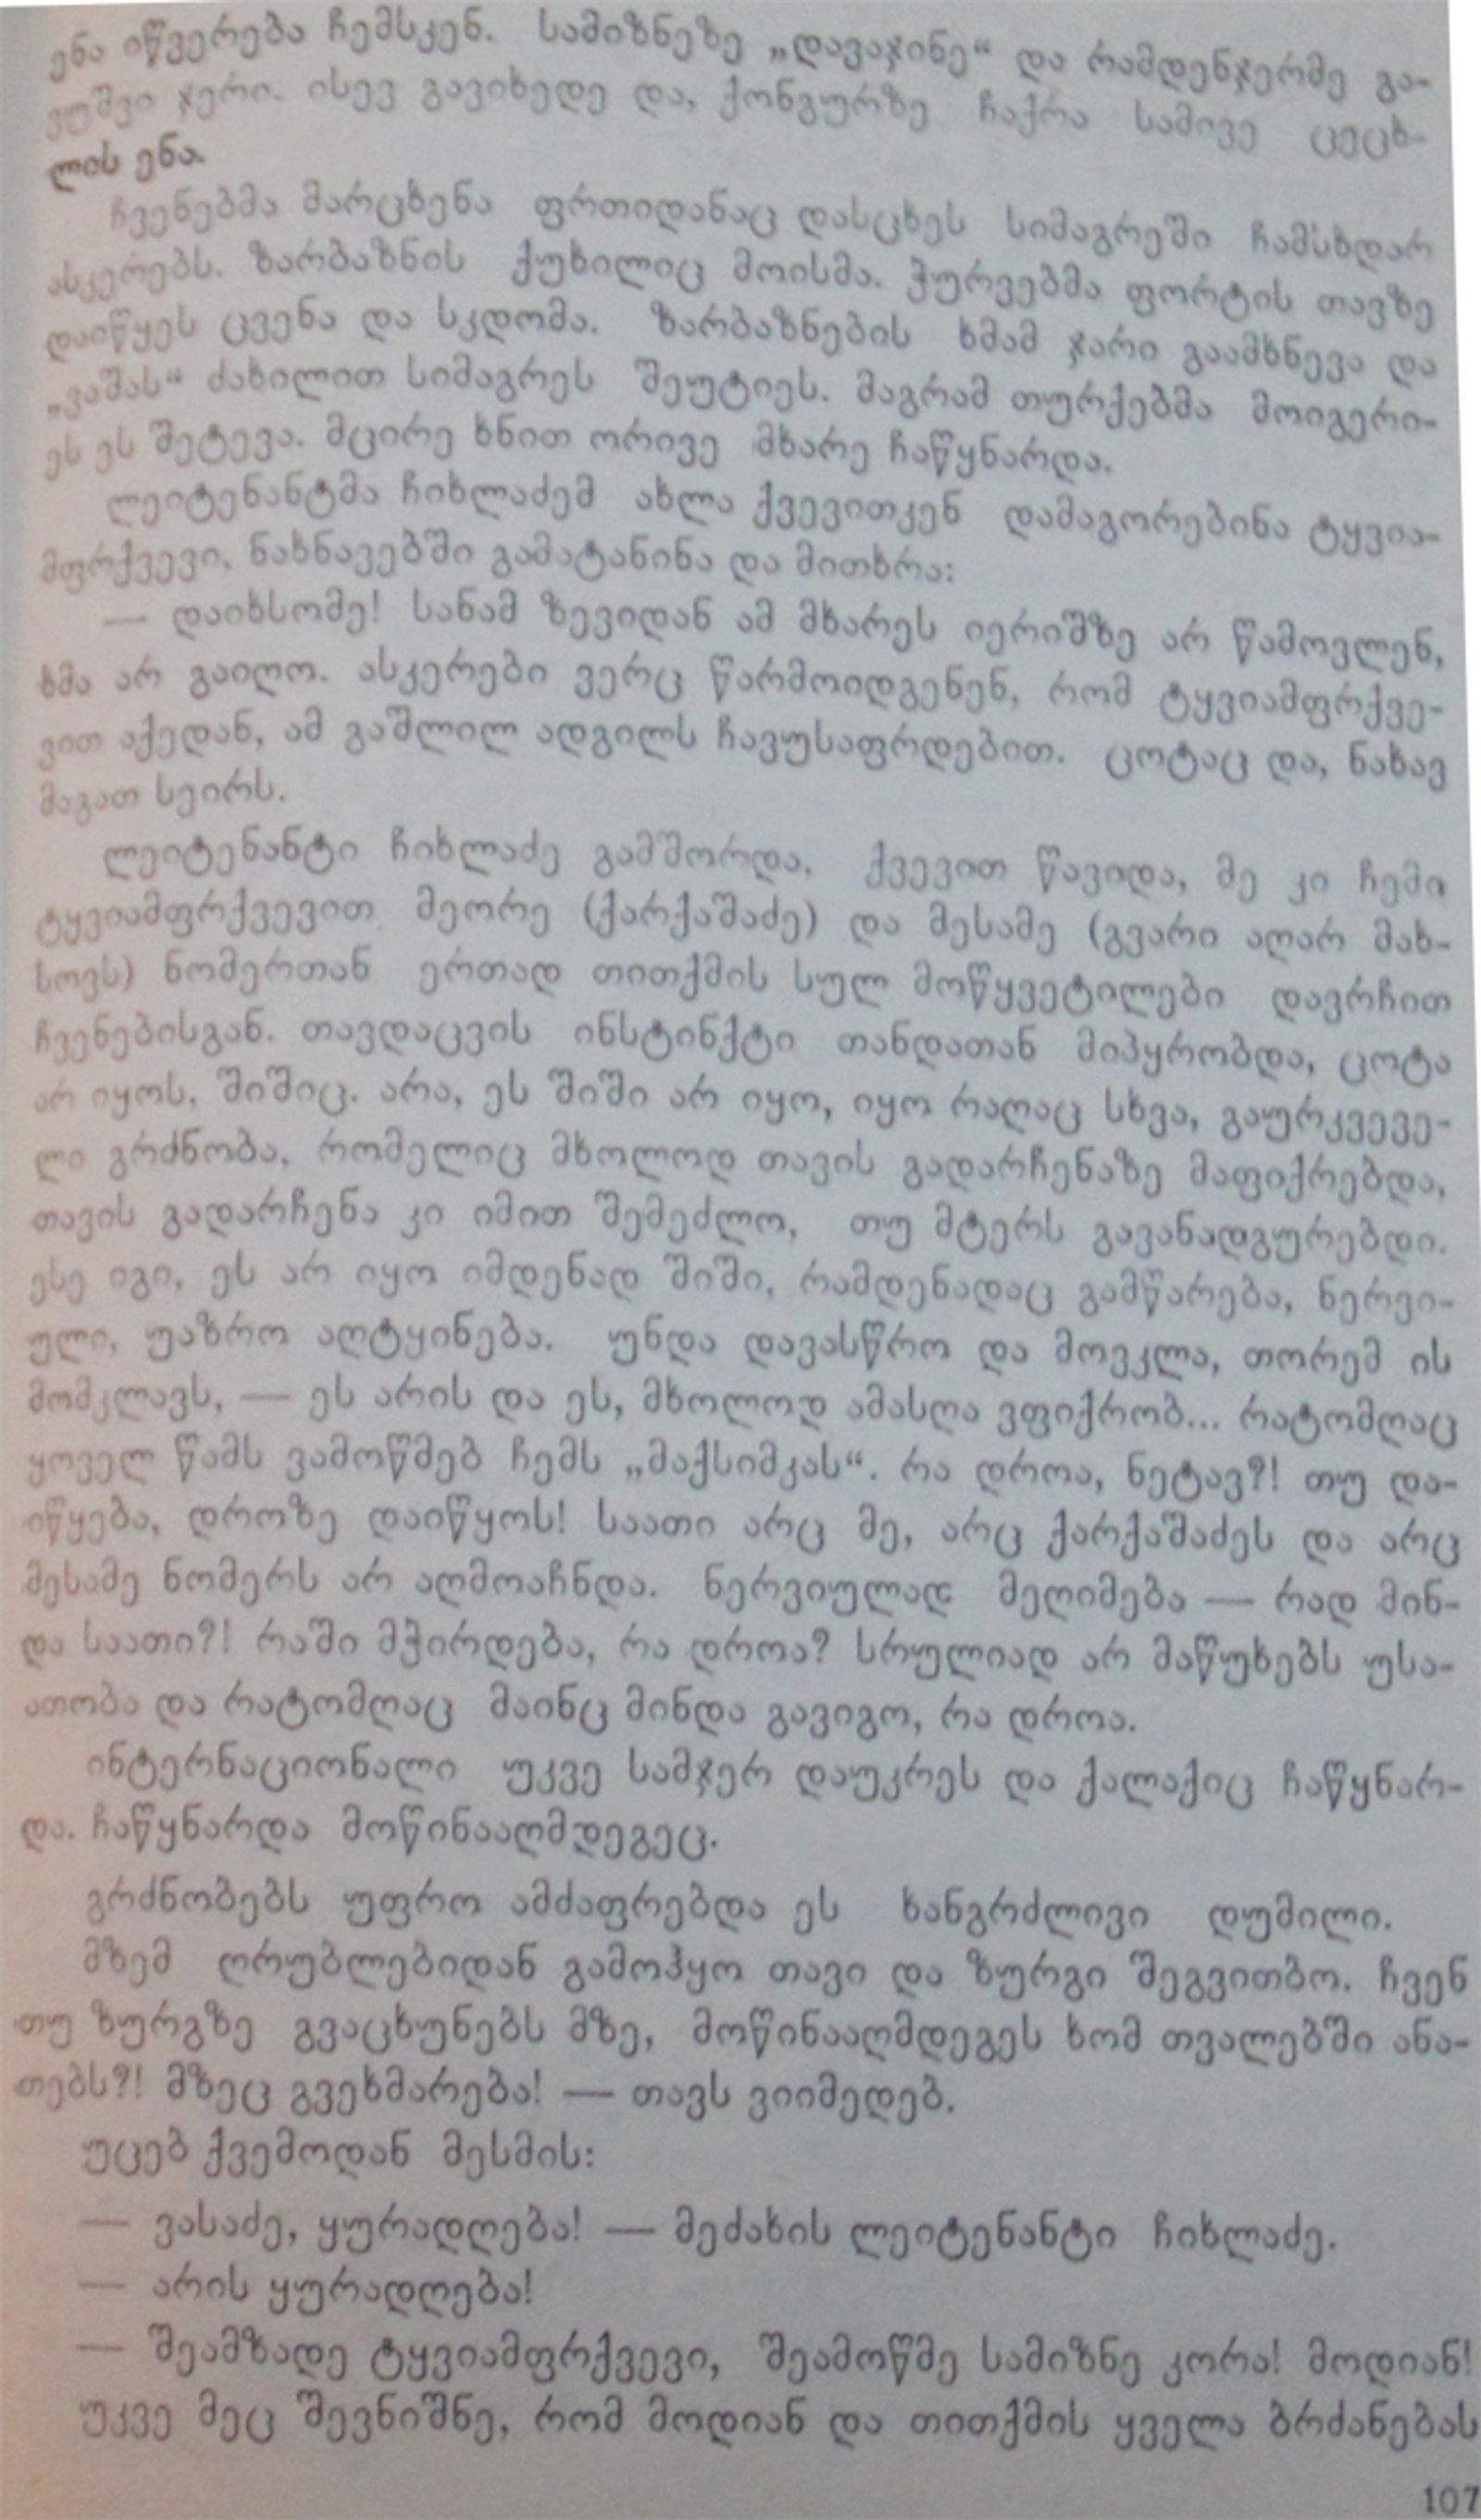 ენა იწვერება ჩემსკენ. სამიზნეზე „დავაჯინე“ და რამდენჯერმე გა-
ვუშვი ჯერი. ისევ გავიხედე და, ქონგურზე ჩაქრა სამივე ცეცხ-
ლის ენა.
ჩვენებმა მარცხენა ფრთიდანაც დასცხეს სიმაგრეში ჩამსხდარ
ასკერებს. ზარბაზნის ქუხილიც მოისმა. ჭურვებმა ფორტის თავზე
დაიწყეს ცვენა და სკდომა. ზარბაზნების ხმამ ჯარი გაამხნევა და
„ვაშას“ ძახილით სიმაგრეს შეუტიეს. მაგრამ თურქებმა მოიგერი-
ეს ეს შეტევა. მცირე ხნით ორივე მხარე ჩაწყნარდა.
ლეიტენანტმა ჩიხლაძემ ახლა ქვევითკენ დამაგორებინა ტყვია-
მფრქვევი, ნახნავებში გამატანინა და მითხრა:
— დაიხსომე! სანამ ზევიდან ამ მხარეს იერიშზე არ წამოვლენ,
ხმა არ გაიღო. ასკერები ვერც წარმოიდგენენ, რომ ტყვიამფრქვე-
ვით აქედან, ამ გაშლილ ადგილს ჩავუსაფრდებით. ცოტაც და, ნახავ
მაგათ სეირს.
ლეიტენანტი ჩიხლაძე გამშორდა, ქვევით წავიდა, მე კი ჩემი
ტყვიამფრქვევით მეორე (ქარქაშაძე) და მესამე (გვარი აღარ მახ-
სოვს) ნომერთან ერთად თითქმის სულ მოწყვეტილები დავრჩით
ჩვენებისგან. თავდაცვის ინსტინქტი თანდათან მიპყრობდა, ცოტა
არ იყოს, შიშიც. არა, ეს შიში არ იყო, იყო რაღაც სხვა, გაურკვევე-
ლი გრძნობა, რომელიც მხოლოდ თავის გადარჩენაზე მაფიქრებდა,
თავის გადარჩენა კი იმით შემეძლო, თუ მტერს გავანადგურებდი.
ესე იგი, ეს არ იყო იმდენად შიში, რამდენადაც გამწარება, ნერვი-
ული, უაზრო აღტყინება. უნდა დავასწრო და მოვკლა, თორემ ის
მომკლავს, — ეს არის და ეს, მხოლოდ ამასღა ვფიქრობ... რატომღაც
ყოველ წამს ვამოწმებ ჩემს „მაქსიმკას“. რა დროა, ნეტავ?! თუ და-
იწყება, დროზე დაიწყოს! საათი არც მე, არც ქარქაშაძეს და არც
მესამე ნომერს არ აღმოაჩნდა. ნერვიულად მეღიმება — რად მინ-
და საათი?! რაში მჭირდება, რა დროა? სრულიად არ მაწუხებს უსა-
ათობა და რატომღაც მაინც მინდა გავიგო, რა დროა.
ინტერნაციონალი უკვე სამჯერ დაუკრეს და ქალაქიც ჩაწყნარ-
და. ჩაწყნარდა მოწინააღმდეგეც.
გრძნობებს უფრო ამძაფრებდა ეს ხანგრძლივი დუმილი.
მზემ ღრუბლებიდან გამოჰყო თავი და ზურგი შეგვითბო. ჩვენ
თუ ზურგზე გვაცხუნებს მზე, მოწინააღმდეგეს ხომ თვალებში ანა-
თებს?! მზეც გვეხმარება! — თავს ვიიმედებ.
უცებ ქვემოდან მესმის:
— ვასაძე, ყურადღება! — მეძახის ლეიტენანტი ჩიხლაძე.
— არის ყურადღება!
— შეამზადე ტყვიამფრქვევი, შეამოწმე სამიზნე კორა! მოდიან!
უკვე მეც შევნიშნე, რომ მოდიან და თითქმის ყველა ბრძანებას
107